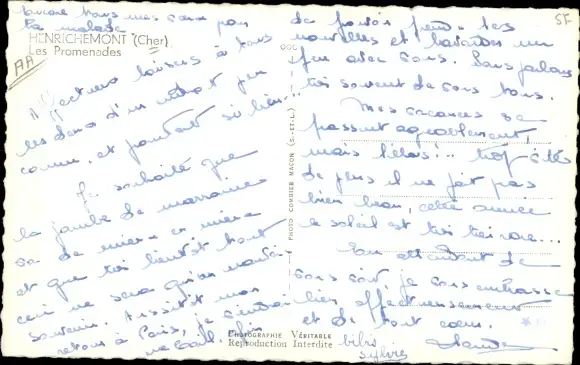 encore tous mes vœux pour
ta malade
HENRICHEMONT (Cher)
Les Promenades
AA
Affectueux baisers à tous
les deux d'un endroit peu
connu, et pourtant si bien...
Je souhaite que
la jambe de marraine
va de mieux en mieux
et que très bientôt tout
ceci ne sera qu'un mauvais
souvenir. Aussitôt mon
retour à Paris, je
un coup de
de pouvoir prendre tes
nouvelles et bavarder un
peu avec vous. Nous parlons
très souvent de vous tous.
Mes vacances se
passent agréablement,
mais hélas!... trop vite
de plus il ne fait pas
bien beau, cette année
le soleil est très très rare...
En attendant de
vous voir je vous embrasse
bien affectueusement
et de tout cœur.
SF
PHOTO COMBIER MACON (S.-ET-L.)
PHOTOGRAPHIE VÉRITABLE
Reproduction Interdite
bibis
sylvie